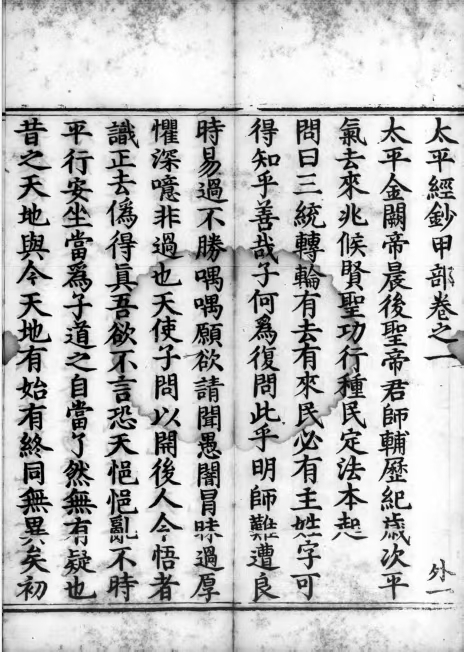 太平經鈔甲部卷之一
外一
太平金闕帝晨後聖帝君師輔歷紀歲次平
氣去來兆候賢聖功行種民定法本起
問曰三統轉輪有去有來民必有主姓字可
得知乎善哉子何爲復問此乎明師難遭良
時易過不勝喁喁願欲請聞愚闇冒昧過厚
懼深噫非過也天使子問以開後人令悟者
識正去僞得真吾欲不言恐天悒悒亂不時
平行安坐當爲子道之自當了然無有疑也
昔之天地與今天地有始有終同無異矣初